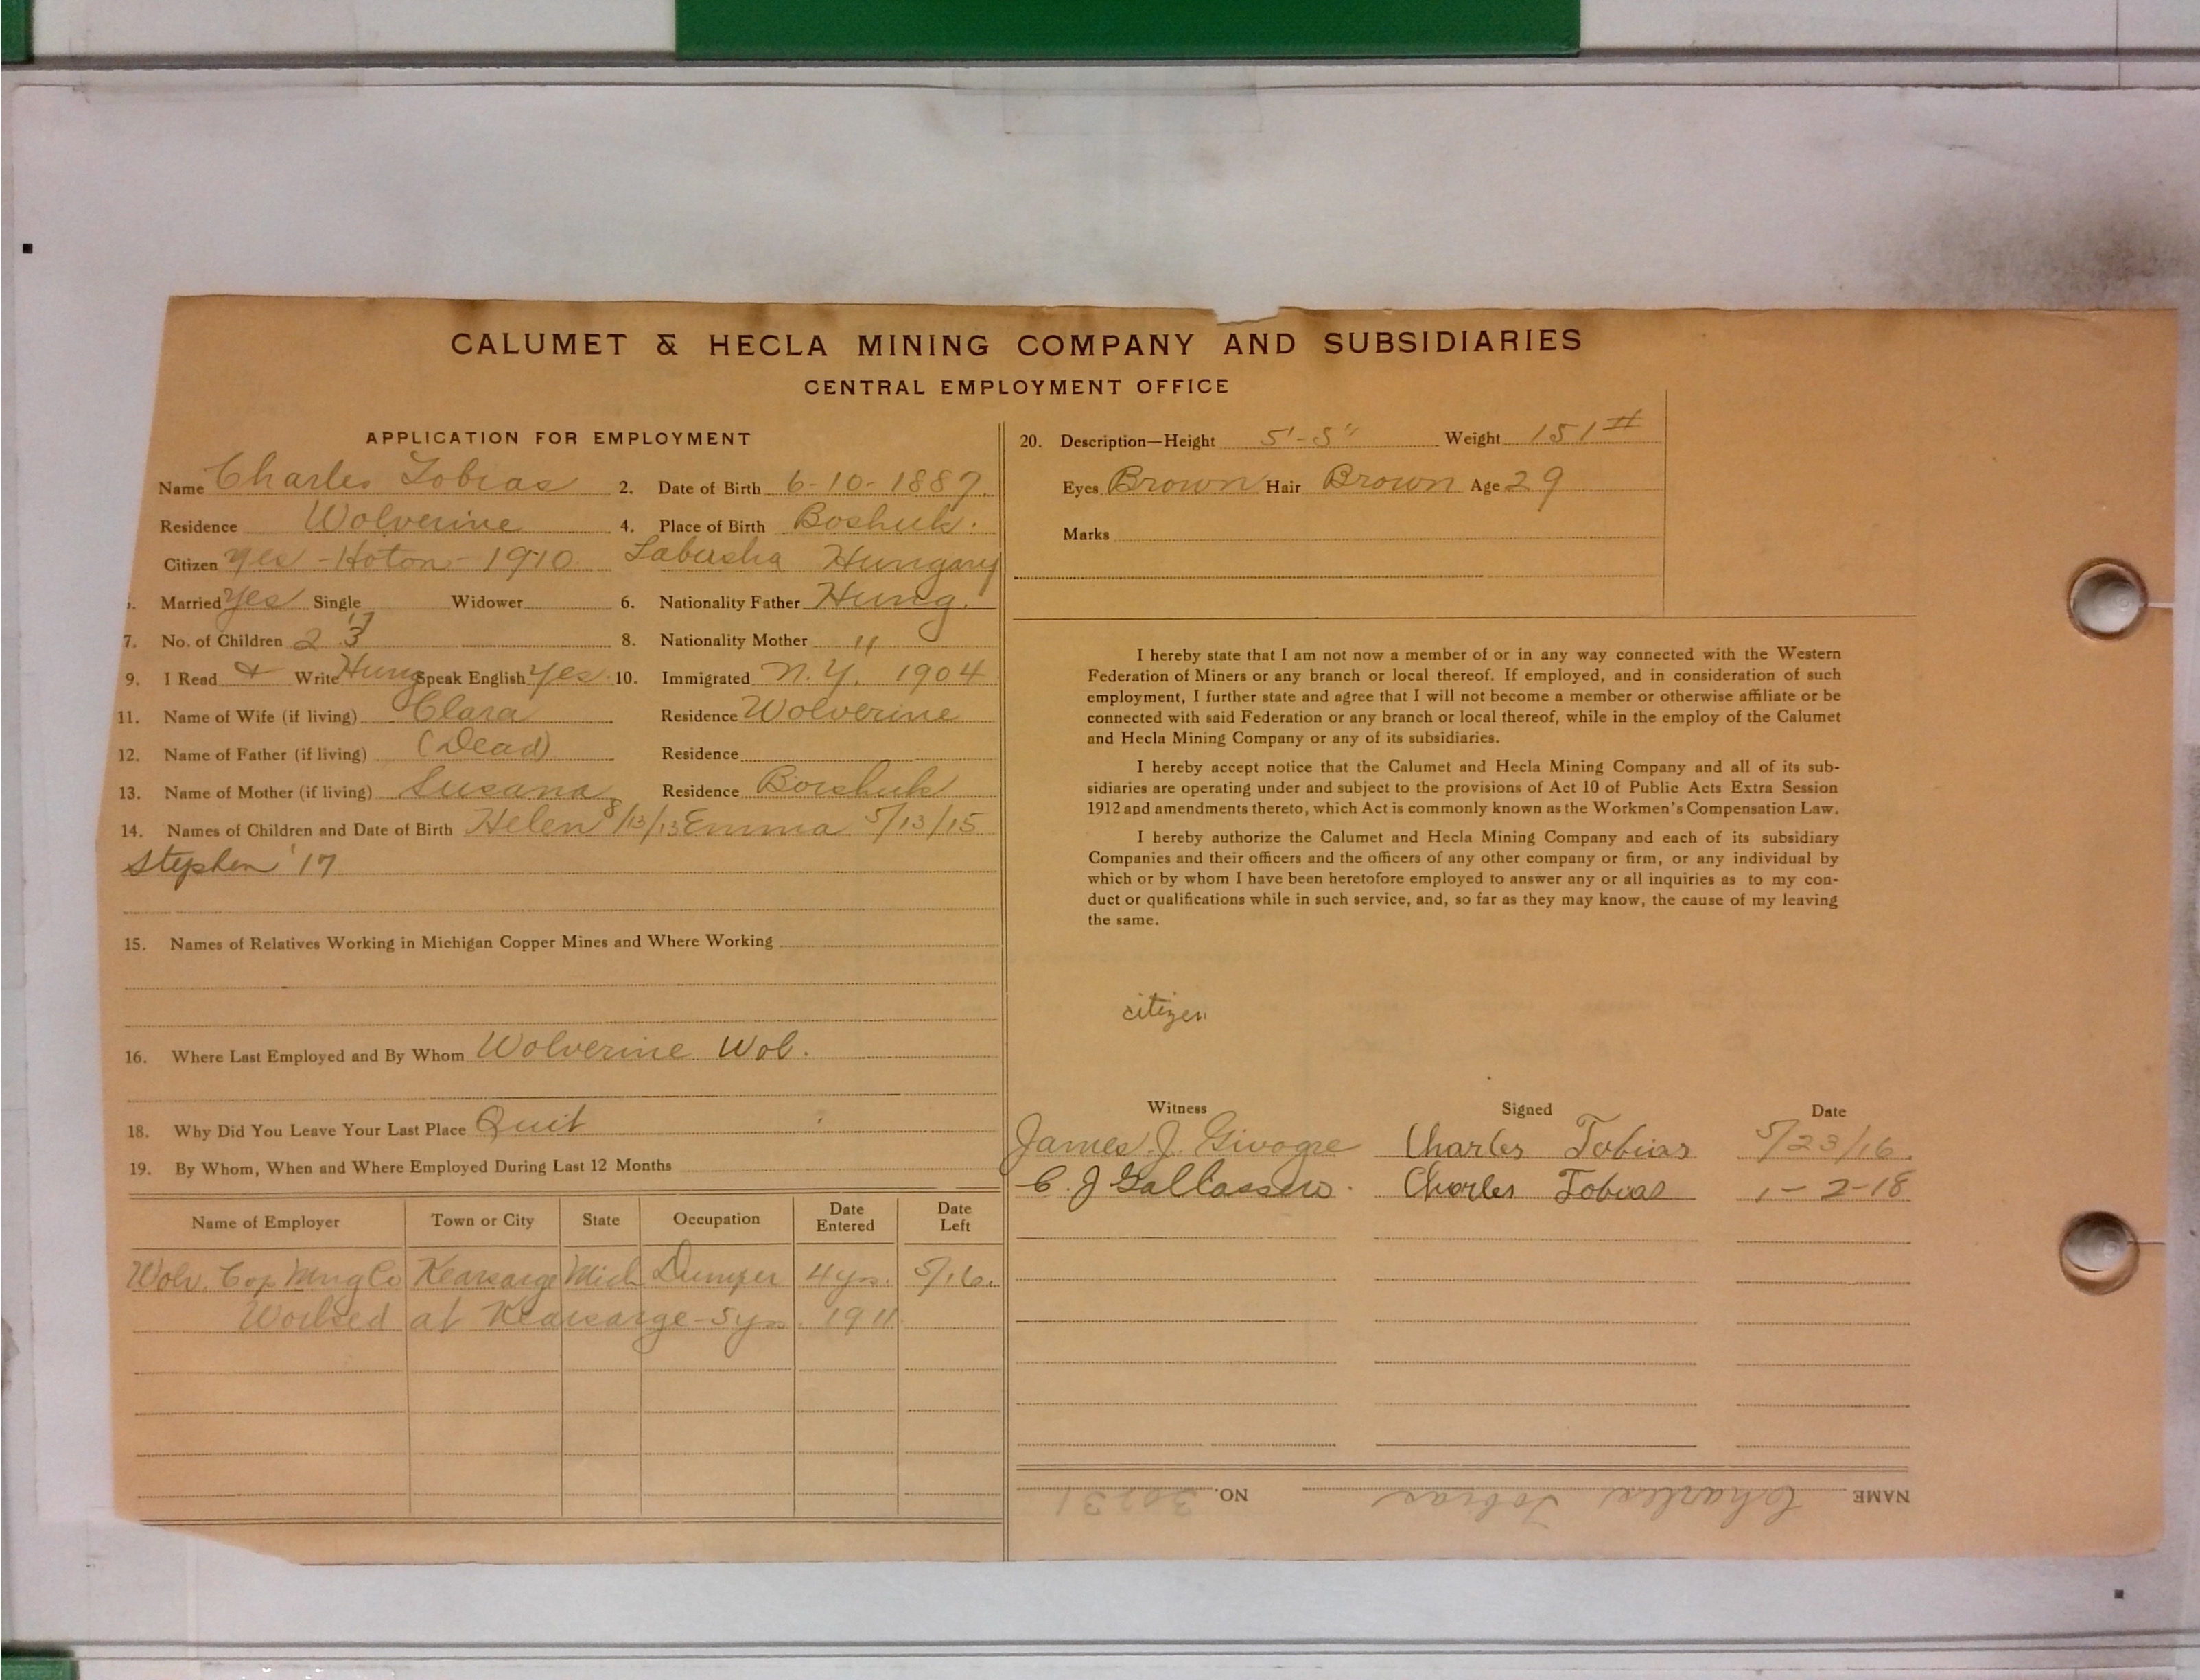 CALUMET & HECLA MINING COMPANY AND SUBSIDIARIES
CENTRAL EMPLOYMENT OFFICE
APPLICATION FOR EMPLOYMENT
Name Charles Tobias 2. Date of Birth 6-10-1887
Residence Wolverine 4. Place of Birth Boshuk.
Citizen Yes - Hoton - 1910 Labasha Hungary
5. Married Yes Single Widower 6. Nationality Father Hung.
7. No. of Children 2 3 '17 8. Nationality Mother "
9. I Read & Write Hung Speak English Yes 10. Immigrated N.Y. 1904
11. Name of Wife (if living) Clara Residence Wolverine
12. Name of Father (if living) (Dead) Residence
13. Name of Mother (if living) Susana Residence Boishuk
14. Names of Children and Date of Birth Helen 8/13/13 Emma 5/13/15
Stephen '17
15. Names of Relatives Working in Michigan Copper Mines and Where Working
16. Where Last Employed and By Whom Wolverine Wol.
18. Why Did You Leave Your Last Place Quit
19. By Whom, When and Where Employed During Last 12 Months
Name of Employer Town or City State Occupation Date Entered Date Left
Wolv. Cop Mng Co Kearsarge Mich Dumper 4 yrs. 5/16.
Worked at Kearsarge - 5 yrs. 1911
20. Description—Height 5'-5" Weight 151#
Eyes Brown Hair Brown Age 29
Marks
I hereby state that I am not now a member of or in any way connected with the Western
Federation of Miners or any branch or local thereof. If employed, and in consideration of such
employment, I further state and agree that I will not become a member or otherwise affiliate or be
connected with said Federation or any branch or local thereof, while in the employ of the Calumet
and Hecla Mining Company or any of its subsidiaries.
I hereby accept notice that the Calumet and Hecla Mining Company and all of its sub-
sidiaries are operating under and subject to the provisions of Act 10 of Public Acts Extra Session
1912 and amendments thereto, which Act is commonly known as the Workmen's Compensation Law.
I hereby authorize the Calumet and Hecla Mining Company and each of its subsidiary
Companies and their officers and the officers of any other company or firm, or any individual by
which or by whom I have been heretofore employed to answer any or all inquiries as to my con-
duct or qualifications while in such service, and, so far as they may know, the cause of my leaving
the same.
citizen
Witness Signed Date
James J. Givogre Charles Tobias 5/23/16.
C. J Gallassero. Charles Tobias 1-2-18
NAME Charles Tobias NO. 30231